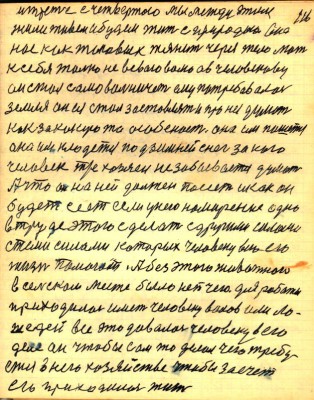 и третье с четвертого мы между этим
жили живем и будем жит с природаю она
нас как таковых тянит через тело мат
к себя только не всваго вомо а в человекову
он стал самовольничат ему потребовалос
земля он ее стал заставлят и про нее думат
как за какую та особеност. она им пашется
она им кладется по зимней снег за кого
человек тоже хозяин не забывается думат
А что он на ней должен посеет и как он
будет сеят семи у него намерение одно
в труде этого сделат с другими силами
стеми силами которых человеку вне его
жизни помогат А без этого животного
в селском месте было нет чего. для работы
приходилос имет человеку волов или ло-
шадей все это давалос человеку в его
деле он чтобы сам то делал чего требу-
ется в него хозяйстве чтобы за счет
его приходилос жит